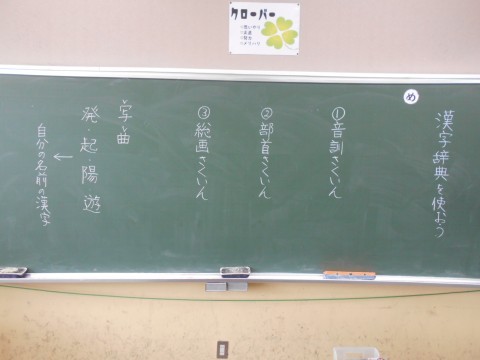 クローバー
め
漢字辞典を使おう
①音訓さくいん
②部首さくいん
③総画さくいん
写・曲
発・起・陽・遊
↓
自分の名前の漢字